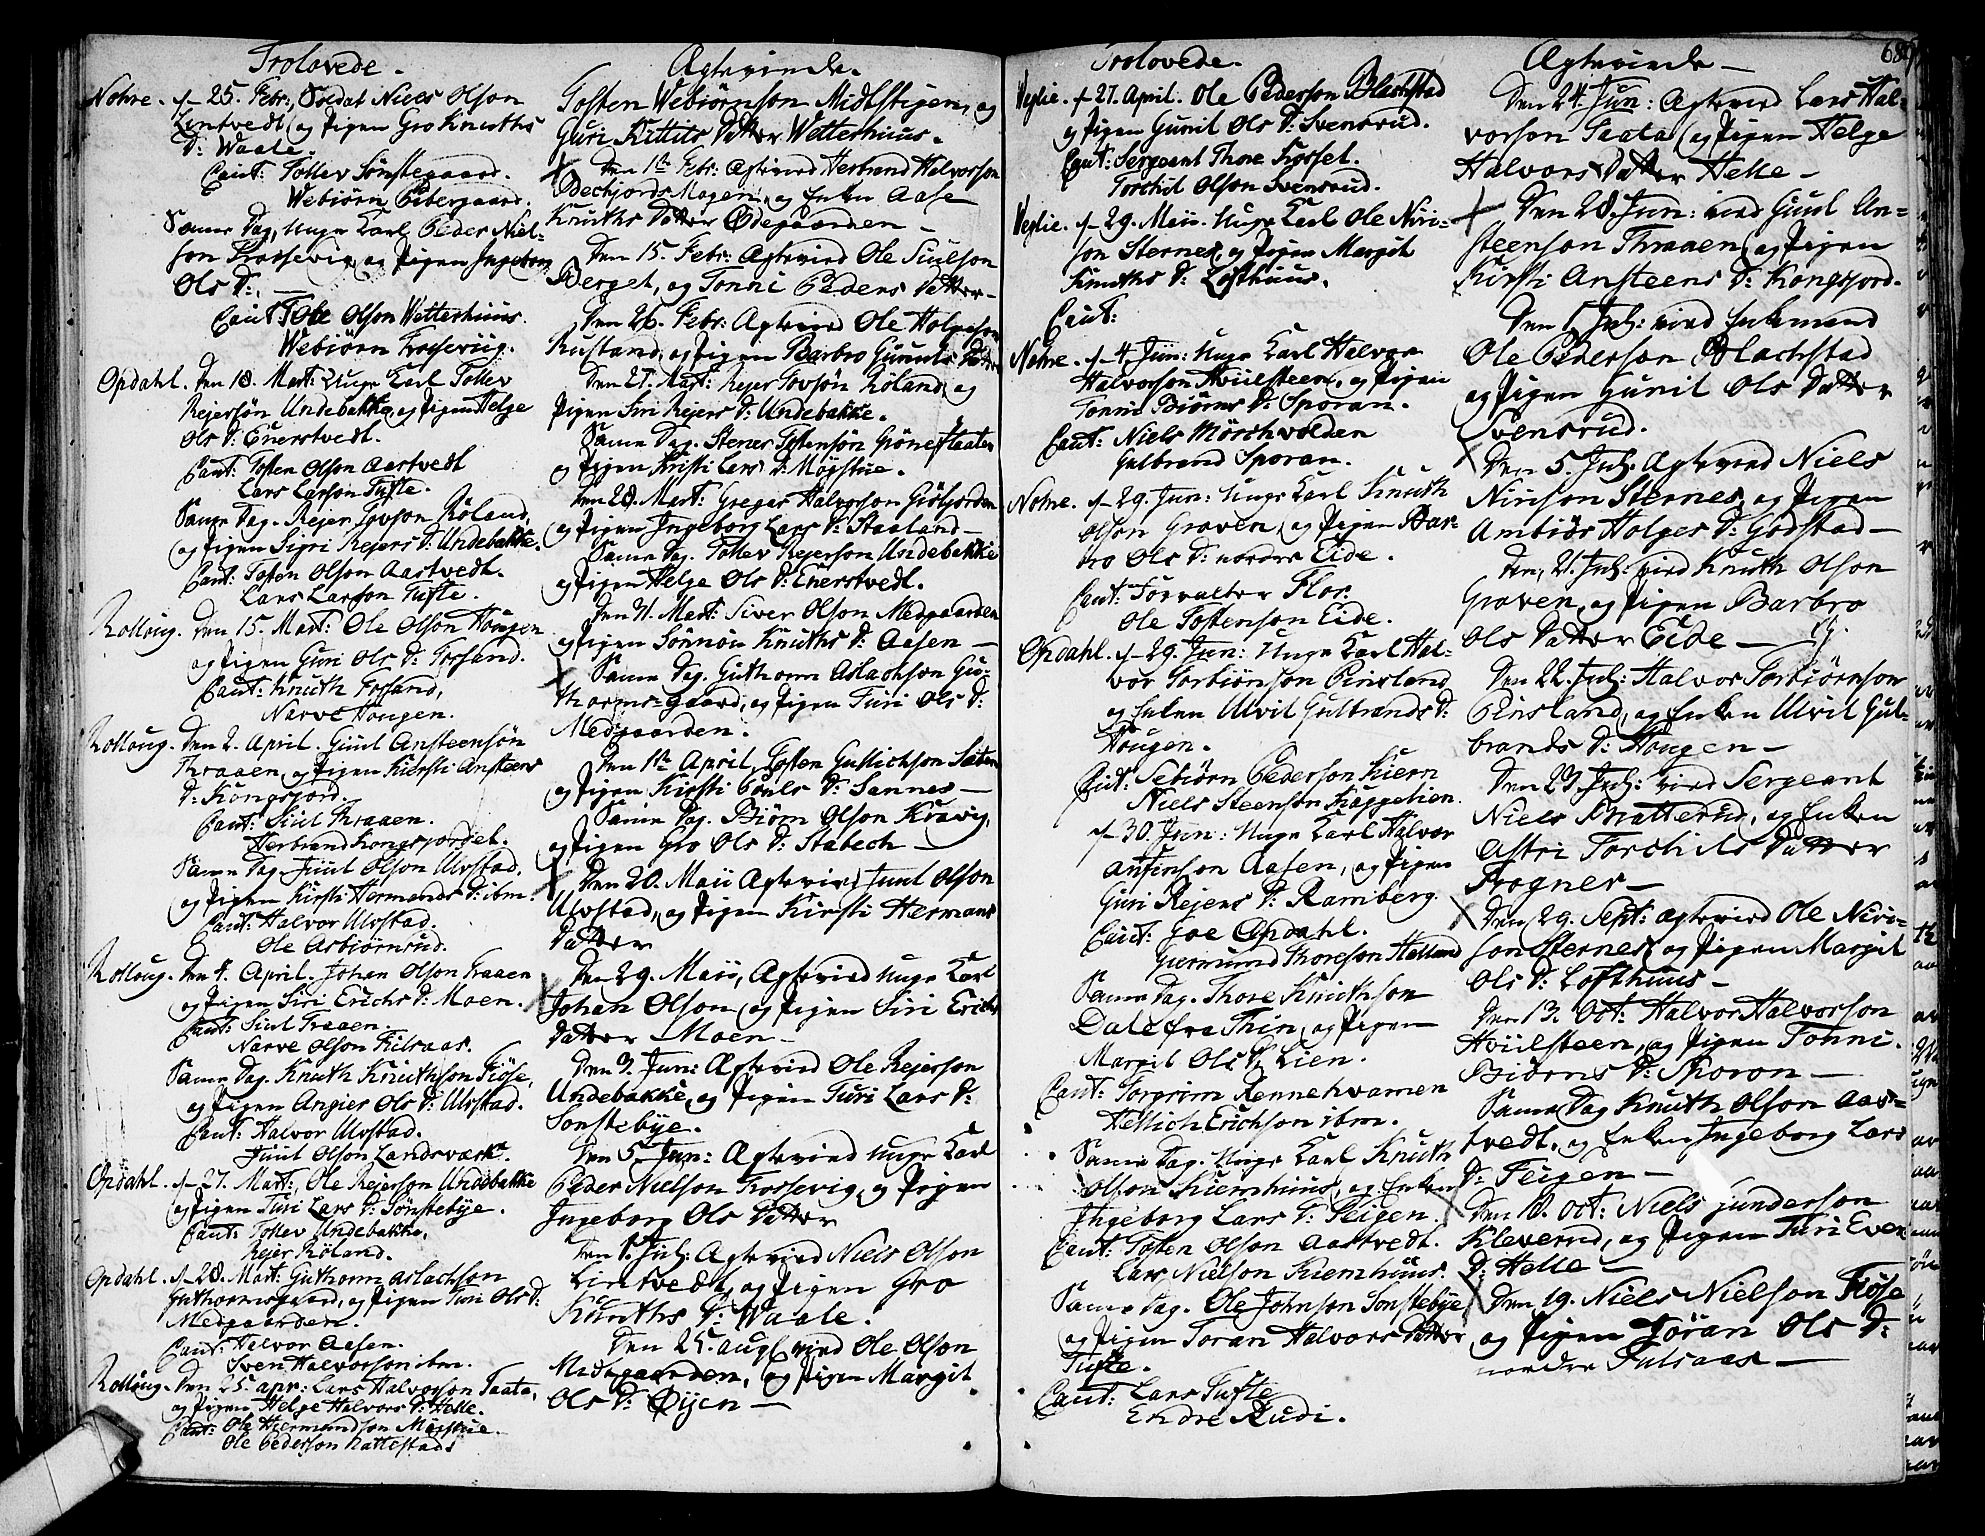 Trolovede.
Nohre. d. 25. Febr: Soldat Niels Olson
Lintvedt, og Pigen Gro Knuths
D: Waale.
Caut: Tollev Sönstegaard.
Webiørn Bibergaard.
Samme Dag, Unge Karl Peder Niel-
son Frossevig, og Pigen Ingeborg
Ols D: —
Caut: Ole Olson Wetterhuus.
Webiørn Frossevig.
Opdahl. Den 18. Mart: Unge Karl Tollev
Rejersön Undebakke, og Pigen Helge
Ols D: Enerstvedt.
Caut: Tosten Olson Aastvedt
Lars Larson Tufte.
Samme Dag. Rejer Tovson Röland,
og Pigen Sigri Rejers D: Undebakke.
Caut: Tosten Olson Aastvedt.
Lars Larson Tufte.
Rolloug. Den 15. Mart: Ole Olson Hougen
og Pigen Guri Ols D: Fossand.
Caut: Knuth Fossand,
Narve Hougen.
Rolloug. Den 2. April. Giuul Ansteensön
Thraaen, og Pigen Kiersti Ansteens
D: Kongsjord.
Caut: Siul Thraaen.
Herbrand Kongsjordet.
Samme Dag. Juul Olson Ulvstad,
og Pigen Kirsti Hermands D: ibm.
Caut: Halvor Ulvstad.
Ole Asbiörnrud.
Rolloug. Den 4. April. Johan Olson Traaen
og Pigen Siri Erichs D: Moen.
Caut: Siul Traaen.
Narve Olson Fulsaas.
Samme Dag. Knuth Knuthson Fiöse,
og Pigen Angier Ols D: Ulvstad.
Caut: Halvor Ulvstad.
Juul Olson Landsværk.
Opdahl. d. 27. Mart: Ole Rejerson Undebakke
og Pigen Turi Lars D: Sönstebÿe.
Caut: Tollev Undebakke,
Rejer Röland.
Opdahl. d. 28. Mart: Guthorm Aslachson
Guthormsgaard, og Pigen Turi Ols D:
Medgaarden.
Caut: Halvor Aasen.
Sven Halvorson ibm.
Rolloug. Den 25. Apr: Lars Halvorson Taata,
og Pigen Helge Halvors D: Helle.
Caut: Ole Hermundson Mögstue.
Ole Pederson Nattestad.
Ægteviede.
Tosten Webiørnson Midtstigen, og
Guri Kittils Datter Wetterhuus.
Den 1te Febr: Ægteviед Herbrand Halvorson
Bechjords Mogen, og Enken Aase
Knuths Datter Ödegaarden —
Den 15. Febr: Ægtevied Ole Siulson
Berget, og Tonni Peders Datter —
Den 26. Febr: Ægtevied Ole Holgeson
Rustand, og Pigen Barbro Gunuls Datter
Den 27. Mart: Rejer Tovsön Röland, og
Pigen Siri Rejers D: Undebakke.
Samme Dag. Stener Tostensön Grönneflaaten
og Pigen Kirsti Lars D: Mögstue.
Den 28. Mart: Greger Halvorson Giötjorden
og Pigen Ingeborg Lars D: Staaland —
Samme Dag. Tollev Rejerson Undebakke
og Pigen Helge Ols D: Enerstvedt.
Den 31. Mart: Siver Olson Medgaarden
og Pigen Sönnou Knuths D: Aasen —
Samme Dag. Guthorm Aslachson Gu-
thorms-gaard, og Pigen Turi Ols D:
Medgaarden.
Den 1te April, Tosten Gullichson Sæten
og Pigen Kirsti Pouls D: Sannes —
Samme Dag. Biörn Olson Kravig,
og Pigen Gro Ols D: Stabech —
Den 20. Maii Ægtevied Juul Olson
Ulvstad, og Pigen Kirsti Hermans
Datter
Den 29. Maii, Ægtevied Unge Karl
Johan Olson, og Pigen Siri Erichs
Datter Moen —
Den 3. Jun: Ægtevied Ole Rejerson
Undebakke, og Pigen Turi Lars D:
Sonstebÿe.
Den 5. Jun: Ægtevied Unge Karl
Peder Nielson Frossevig, og Pigen
Ingeborg Ols Datter
Den 1. Jul: Ægtevied Niels Olson
Lintvedt, og Pigen Gro
Knuths D: Waale.
Den 25. Aug: vied Ole Olson
Medgaarden, og Pigen Margit
Ols D: Öijen —
Trolovede.
Veglie. d. 27. April. Ole Pederson Blachstad
og Pigen Gunil Ols D: Svensrud.
Caut: Sergeant Thore Fossel.
Torchil Olson Svensrud.
Veglie. d. 29. Maii. Unge Karl Ole Niri-
son Sternes, og Pigen Margit
Knuths D: Lofthuus.
Caut:
Nohre. d. 4. Jun: Unge Karl Halvor
Halvorson Hviilsteen, og Pigen
Tonni Biörns D: Sporan.
Caut: Niels Mörchvolden
Gulbrand Sporan.
Nohre. d. 29. Jun: Unge Karl Knuth
Olson Graven, og Pigen Bar-
bro Ols D: nordre Eide.
Caut: Forvalter Flor.
Ole Tostenson Eide.
Opdahl. d. 29. Jun: Unge Karl Hal-
vor Torbiörnson Pinsland
og Enken Ulvil Gulbrands D:
Hougen.
Caut: Sebiörn Pederson Kiern
Niels Steenson Kappelien.
d. 30. Jun: Unge Karl Halvor
Antenson Aasen, og Pigen
Guri Rejers D: Ramberg.
Caut: Goe Opdahl.
Guermund Thoreson Helland
Samme Dag. Thore Knuthson
Dale fra Thin, og Pigen
Margit Ols D: Lien.
Caut: Torgrim Rennehvamen
Hellich Erichson ibm.
Samme Dag. Unge Karl Knuth
Olson Kiemhuus, og Enken
Ingeborg Lars D: Feigen.
Caut: Tosten Olson Aastvedt.
Lars Nielson Kiemhuus.
Samme Dag. Ole Johnson Sonstebÿe
og Pigen Joran Halvors Datter
Tufte.
Caut: Lars Tufte
Endre Rudi.
689
Ægteviede —
Den 24. Jun: Ægtevied Lars Hal-
vorson Taata, og Pigen Helge
Halvors Datter Helle —
Den 28. Jun: vied Giuul An-
steenson Thraaen, og Pigen
Kirsti Ansteens D: Kongsjord.
Den 1. Jul: vied Enkemand
Ole Pederson Blachstad
og Pigen Gunil Ols Datter
Svensrud.
Den 5. Jul: Ægtevied Niels
Nirison Sternes, og Pigen
Ambiör Holges D: Godstad —
Den 21. Jul: vied Knuth Olson
Graven, og Pigen Barbro
Ols Datter Eide —
Den 22. Jul: Halvor Torbiörnson
Pinsland, og Enken Ulvil Gul-
brands D: Hougen —
Den 23. Jul: vied Sergeant
Niels Bratterud, og Enken
Astri Torchils Datter
Frogner —
Den 29. Sept: Ægtevied Ole Niri-
son Sternes, og Pigen Margit
Ols D: Lofthuus —
Den 13. Oct: Halvor Halvorson
Hviilsteen, og Pigen Tonni
Biörns D: Sporon —
Samme Dag Knuth Olson Aas-
tvedt, og Enken Ingeborg Lars
D: Feigen —
Den 18. Oct: Niels Gunderson
Kleverud, og Pigen Turi Even
D: Helle —
Den 19. Niels Nielson Fiöse
og Pigen Jöran Ols D:
nordre Fulsaas —